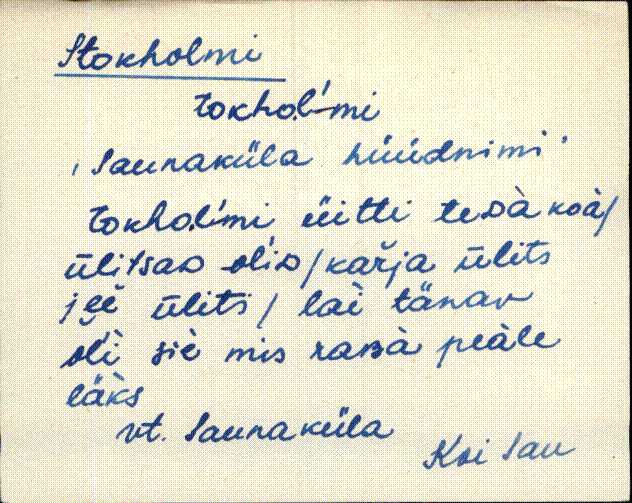 Stokholmi
tokhol´mi
‚Saunaküla hüüdnimi’
tokhol´mi üitti tedà koà/
ülitsad ol´id/karja ülits
jεε̆ üliti/ lai tänav
ol´i siè mis rabà peàle
läks
vt. Saunaküla
Koi Sau